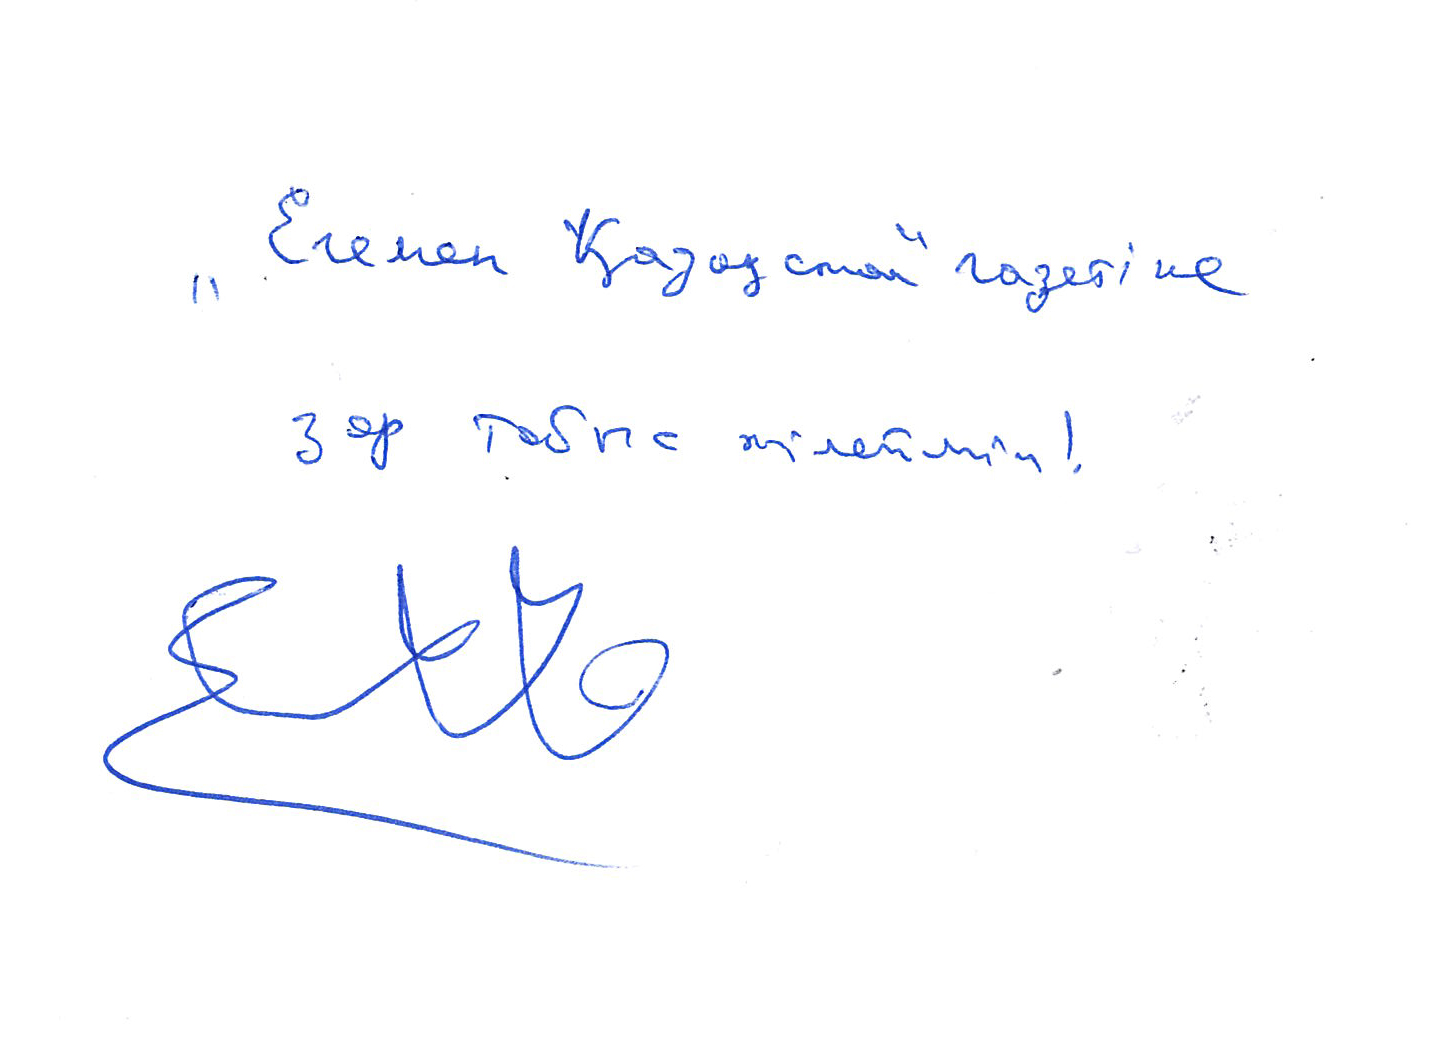 „Егемен Қазақстан“ газетіне
зор табыс тілеймін!